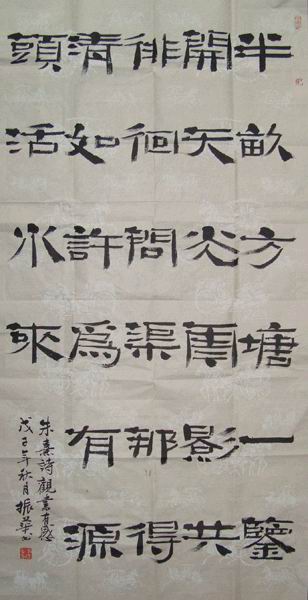 半畝方塘一鑒
開天光雲影共
徘徊問渠那得
清如許爲有源
頭活水來
朱熹詩觀書有感
戊子年秋月振華书